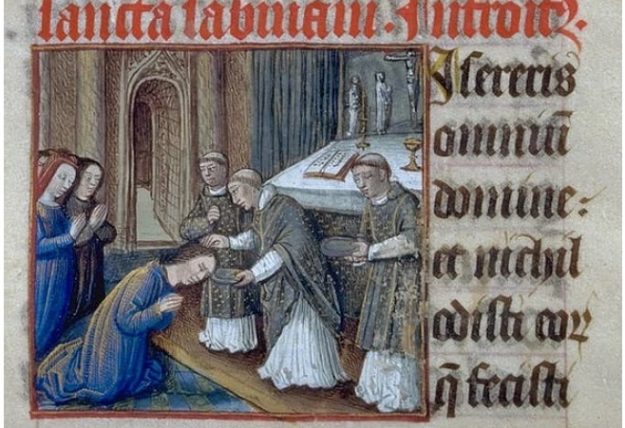 sancta sabinam. Introit⁹.
Misereris
omniū
domine:
et nichil
odisti eoꝝ
q̄ fecisti